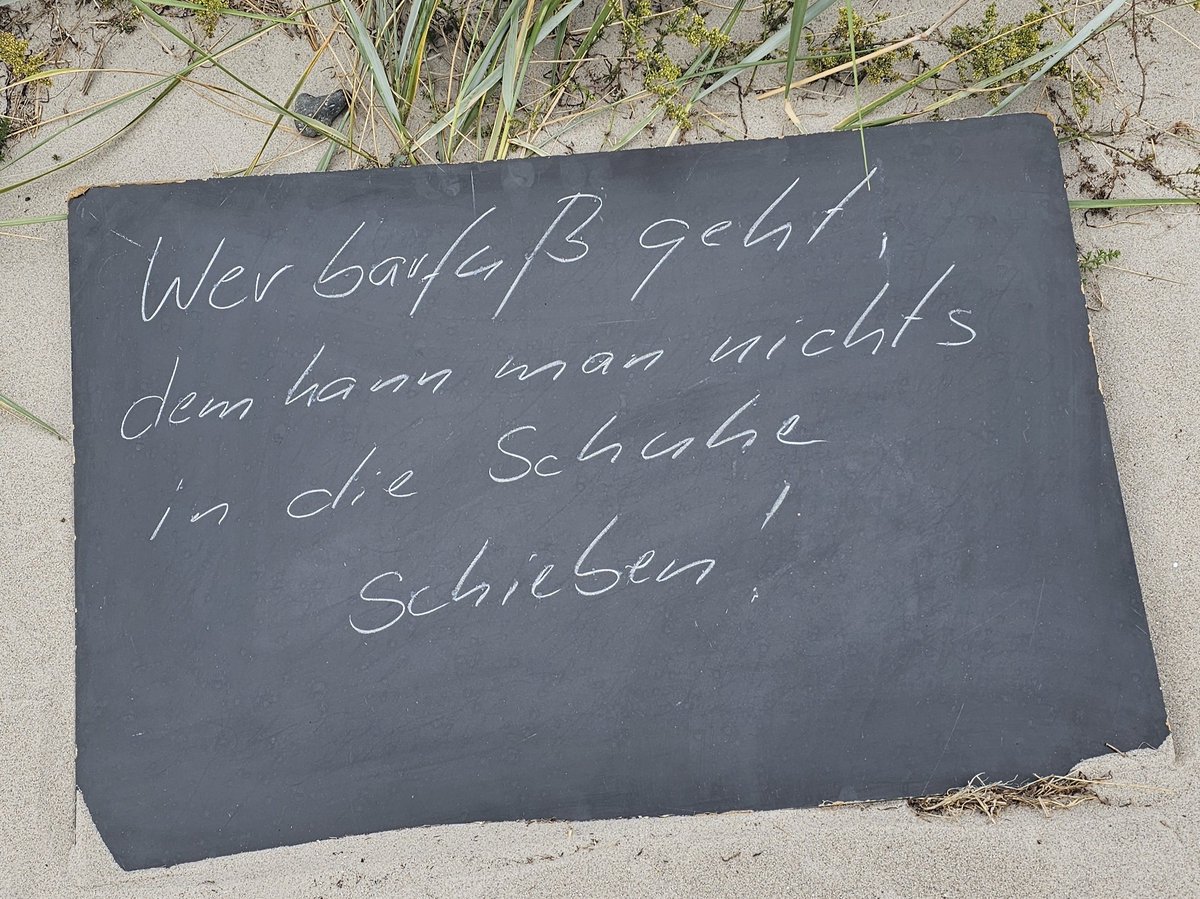 Wer barfuß geht,
dem kann man nichts
in die Schuhe
schieben!